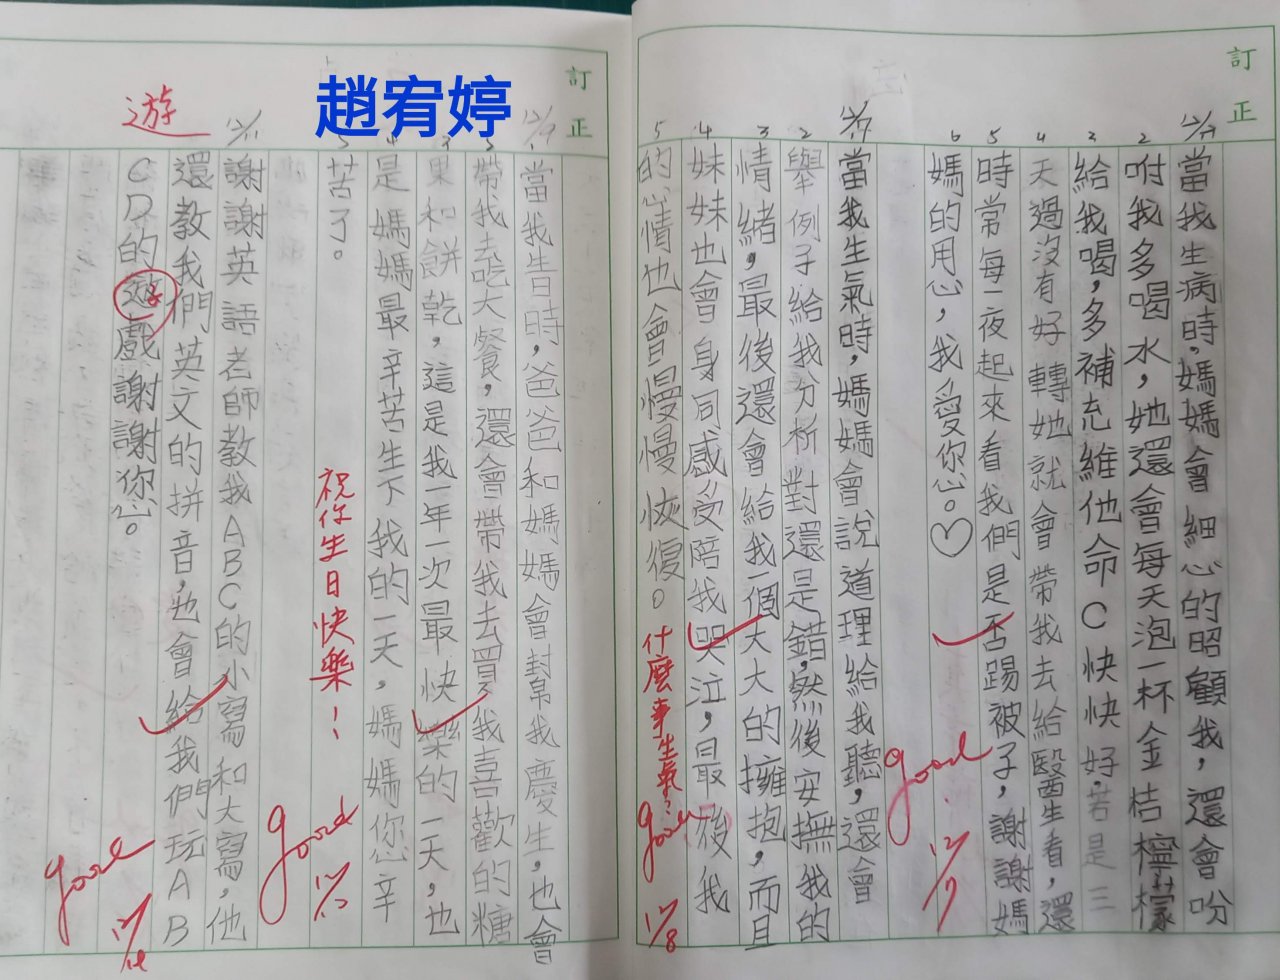 訂正
12/7
當我生病時,媽媽會細心的昭顧我,還會吩
2
咐我多喝水,她還會每天泡一杯金桔檸檬
3
給我喝,多補充維他命C快快好,若是三
4
天過沒有好轉她就會帶我去給醫生看,還
5
時常每一夜起來看我們是否踢被子,謝謝媽
6
媽的用心,我愛您。♡
good
12/7
當我生氣時,媽媽會說道理給我聽,還會
2
舉例子給我分析對還是錯,然後安撫我的
3
情緒,最後還會給我一個大大的擁抱,而且
4
妹妹也會身同感受陪我哭泣,最後我
5
的心情也會慢慢恢復。
什麼事生氣?
good
12/8
訂正
趙宥婷
12/9
當我生日時,爸爸和媽媽會封帛我慶生,也會
帶我去吃大餐,還會帶我去買我喜歡的糖
果和餅乾,這是我一年一次最快樂的一天,也
是媽媽最辛苦生下我的一天,媽媽您辛
苦了。
祝你生日快樂!
good
12/11
謝謝英語老師教我ABC的小寫和大寫,他
還教我們英文的拼音,也會給我們玩AB
CD的遊戲謝謝您。
遊
good